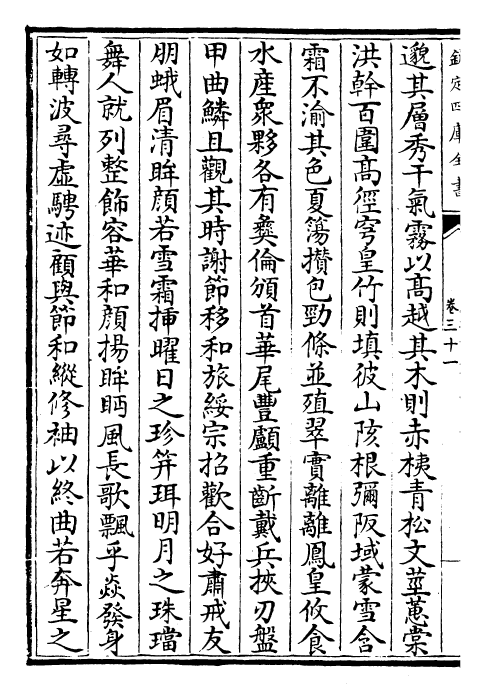 欽定四庫全書
卷三十一
邈其層秀干氣霧以髙越其木則赤桋青松文莖蕙棠
洪幹百圍髙徑穹皇竹則填彼山陔根彌阪域蒙雪含
霜不渝其色夏簜攢包勁條並殖翠實離離鳳皇攸食
水産衆夥各有彛倫頒首華尾豐顱重齗戴兵挾刃盤
甲曲鱗且觀其時謝節移和旅綏宗招歡合好肅戒友
朋蛾眉清眸顔若雪霜揷曜日之珍笄珥明月之珠璫
舞人就列整飾容華和顔揚眸眄風長歌飄乎焱發身
如轉波尋虚騁迹顧與節和縱修袖以終曲若奔星之